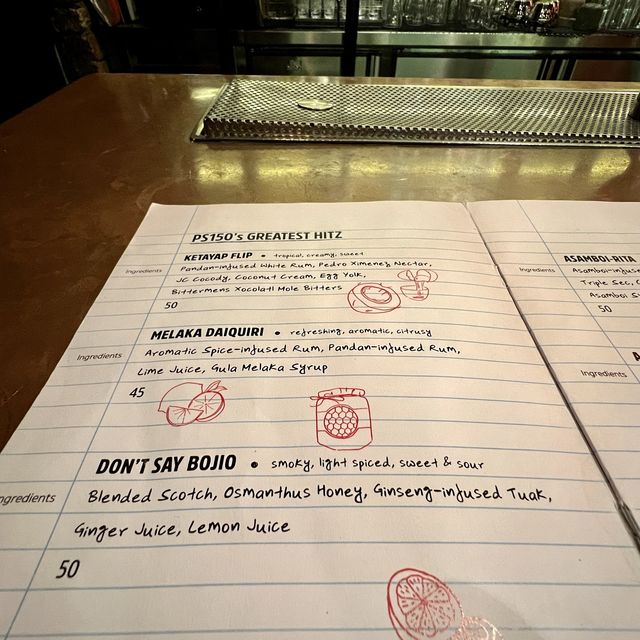 PS150's GREATEST HITZ
KETAYAP FLIP • tropical, creamy, sweet
Ingredients
Pandan-infused White Rum, Pedro Ximenez Nectar,
JC Cocody, Coconut Cream, Egg Yolk,
Bittermens Xocolatl Mole Bitters
50
MELAKA DAIQUIRI • refreshing, aromatic, citrusy
Ingredients
Aromatic Spice-infused Rum, Pandan-infused Rum,
Lime Juice, Gula Melaka Syrup
45
DON'T SAY BOJIO • smoky, light spiced, sweet & sour
ngredients
Blended Scotch, Osmanthus Honey, Ginseng-infused Tuak,
Ginger Juice, Lemon Juice
50
ASAMBOI-RITA
Ingredients
Asamboi-infus
Triple Sec,
Asamboi S
50
Ingredients